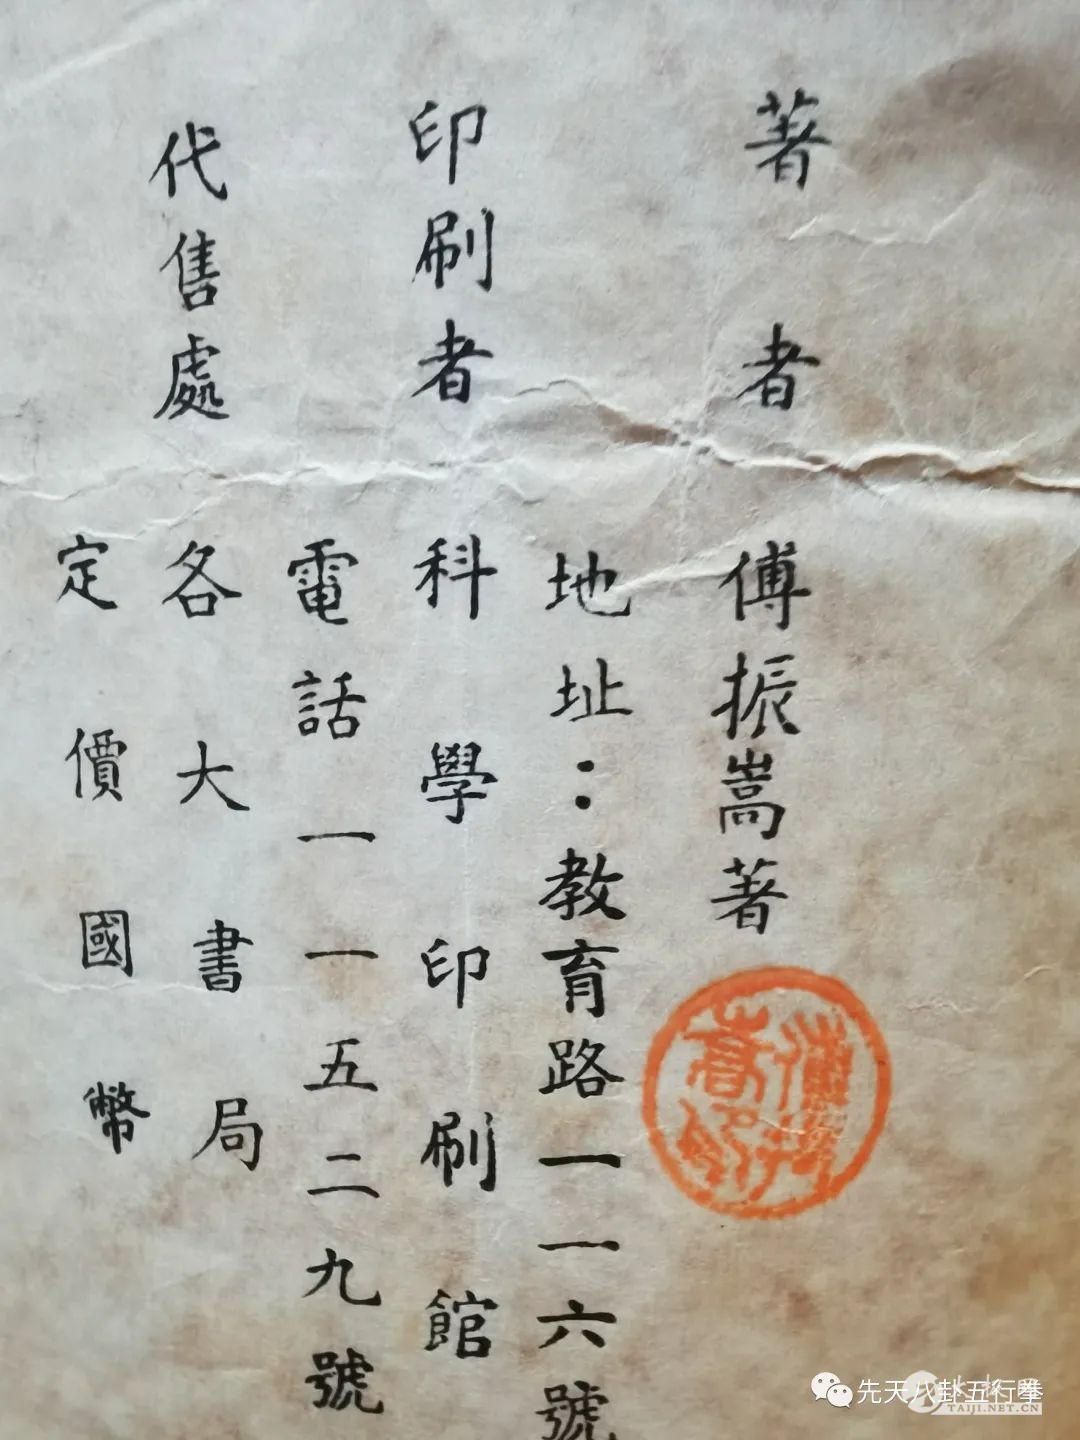 著者
傅振嵩著
地址：教育路一一六號
印刷者
科學印刷館
電話一一五二九號
代售處
各大書局
定價國幣
傅振嵩印
先天八卦五行拳
TAIJI.NET.CN